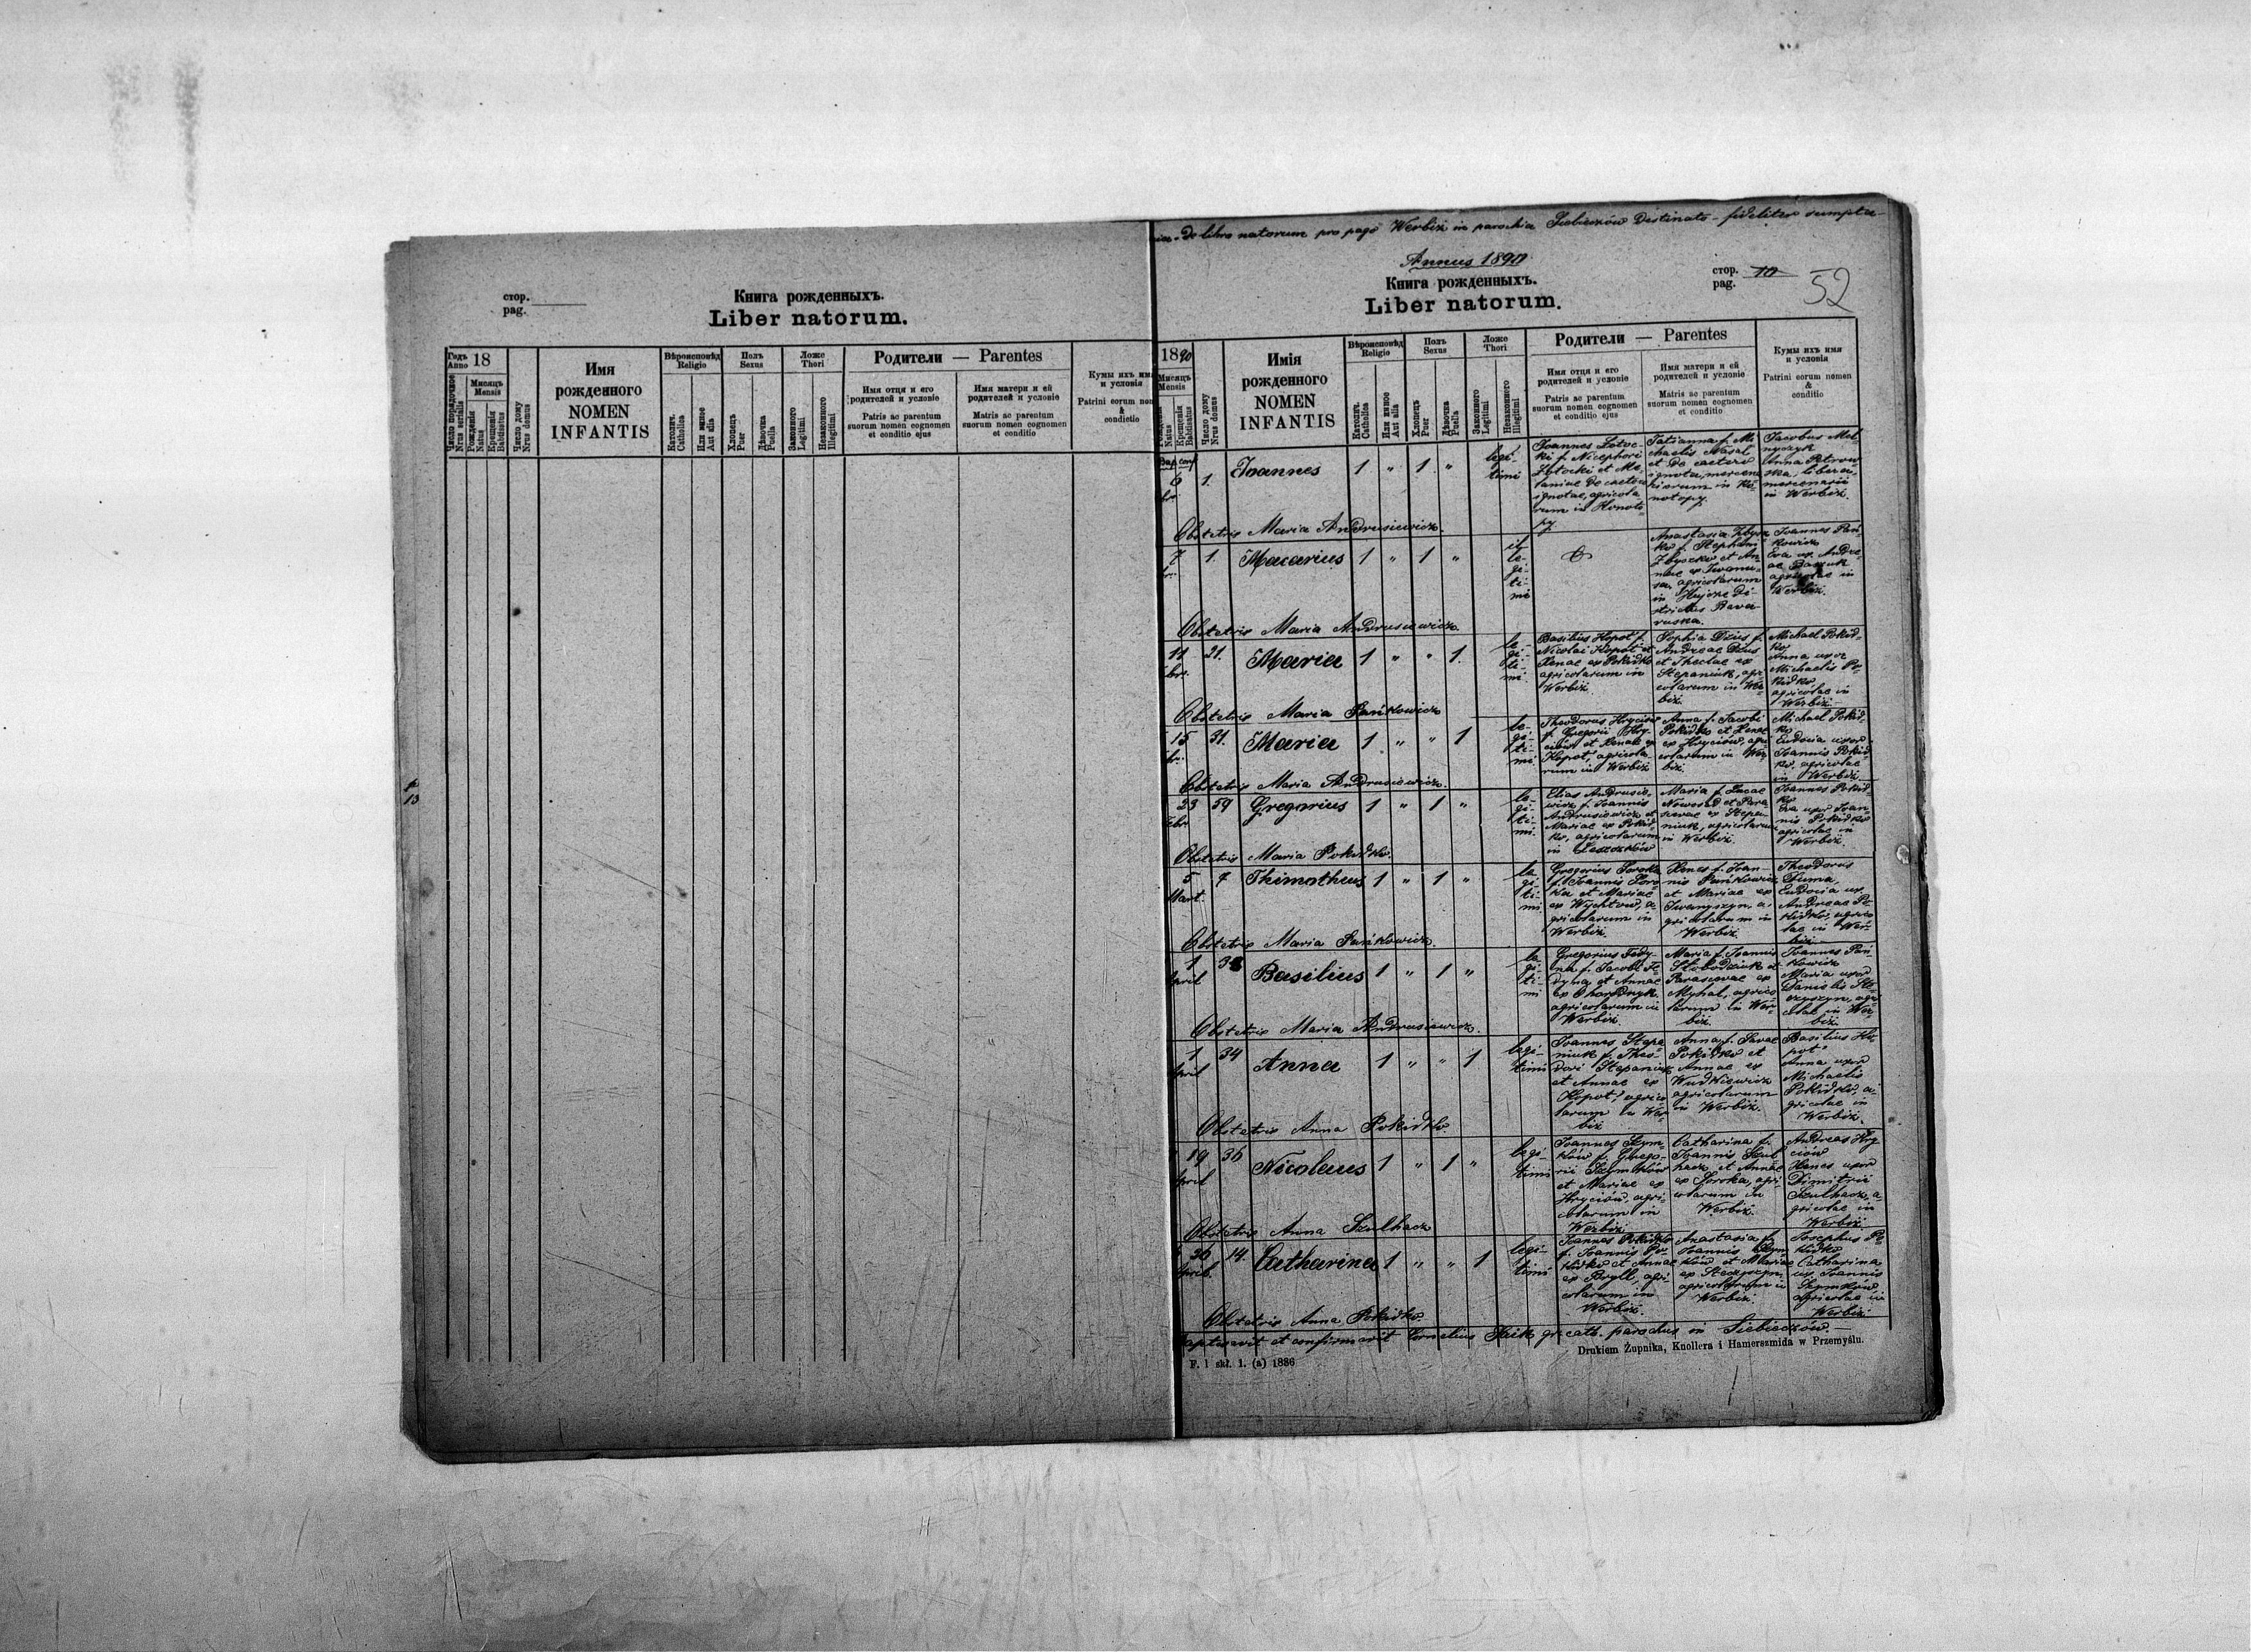 стор.
pag.
Книга рожденныхъ.
Liber natorum.
Годъ
Anno
18
Число порядочное
Nrus serialis
Мисяць
Mensis
Рожденія
Natus
Крещенія
Babtisatus
Число дому
Nrus domus
Имя
рожденного
NOMEN
INFANTIS
Вѣроисповѣд
Religio
Католич.
Catholica
Или иншое
Aut alia
Полъ
Sexus
Хлопецъ
Puer
Дѣвочка
Puella
Ложе
Thori
Законного
Legitimi
Незаконного
Illegitimi
Родители — Parentes
Имя отця и его
родителей и условіе
Patris ac parentum
suorum nomen cognomen
et conditio ejus
Имя матери и ей
родителей и условіе
Matris ac parentum
suorum nomen cognomen
et conditio
Кумы ихъ имя
и условія
Patrini eorum nom
&
condictio
13
de libro natorum pro pago Werbiż in parochia Siebieczów Destinato - fideliter sumpta
Annus 1890
Книга рожденныхъ.
Liber natorum.
стор.
pag.
10
52
1890
Мисяць
Mensis
Natus
Крещенія
Babtisatus
Число дому
Nrus domus
Имія
рожденного
NOMEN
INFANTIS
Вѣроисповѣд
Religio
Католич.
Catholica
Или иншое
Aut alia
Полъ
Sexus
Хлопецъ
Puer
Дѣвочка
Puella
Ложе
Thori
Законного
Legitimi
Незаконного
Illegitimi
Родители — Parentes
Имя отця и его
родителей и условіе
Patris ac parentum
suorum nomen cognomen
et conditio ejus
Имя матери и ей
родителей и условіе
Matris ac parentum
suorum nomen cognomen
et conditio
Кумы ихъ имя
и условія
Patrini eorum nomen
&
conditio
Bap. conf.
6 1. Joannes 1 " 1 "
legi-
timi
Joannes Zotoc-
ki f. Nicephori
Zotocki et Me-
laniae de caetero
ignotae, agricola
rum in Konoto-
py
Tatianna f. Mi-
chaelis Nasal
et de caetero
ignota, mercena
riorum in Ko-
notopy.
Jacobus Mel-
nyczyk
Anna Petrow-
ska, liberi
mercenarii
in Werbiż.
Obstetrix Maria Andrusiewicz.
7 1. Macarius 1 " 1 "
il-
le-
gi-
ti-
mi
Anastasia Zbysz
ko f. Stephani
Zbyszko et An-
nae ex Iwani-
agricolarum
in Hujcze di-
strictus Rava-
ruska.
Joannes Pań-
kowicz
Eva ux. Andre-
ae
agricolae in
Werbiż.
Obstetrix Maria Andrusiewicz.
11 21. Maria 1 " " 1.
le-
gi-
ti-
mi
Basilius Kopot f.
Nicolai Kopot et
Xenae ex Pokidko
agricolarum in
Werbiż.
Sophia Dzius f.
Andreae Dzius
et Theclae ex
Stepaniuk, agri
colarum in Wer-
biż.
Michael Pokid-
ko
Anna uxor
Michaelis Po-
kidko,
agricolae in
Werbiż.
Obstetrix Maria Pańkowicz
15 31. Maria 1 " " 1
le-
gi-
ti-
mi
Theodorus Hryciów
f. Gregorii Hry-
ciów et Xenae ex
Kopot, agricola
rum in Werbiż
Anna f. Jacobi
Pokidko et Xenae
ex Hryciów, agri
colarum in Wer-
biż.
Michael Pokid-
ko
Eudocia uxor
Joannis Pokid-
ko, agricolae
in Werbiż
Obstetrix Maria Andrusiewicz.
23 59 Gregorius 1 " 1 "
le-
gi-
ti-
mi.
Elias Andrusie-
wicz f. Joannis
Andrusiewicz et
Mariae ex Pokid-
ko, agricolarum
in Leszczków
Maria f. Lucae
Nowosad et Para-
scevae ex Stepa-
niuk, agricolarum
in Werbiż.
Joannes Pokid-
ko
Eva uxor Joan-
nis Pokidko
agricolae in
Werbiż.
Obstetrix Maria Pokidko.
5 7 Thimotheus 1 " 1 "
Mart.
le-
gi-
ti-
mi
Gregorius Soroka
f. Joannis Soro-
ka et Mariae
ex Wychtow, a-
gricolarum in
Werbiż.
Xenes f. Joan-
nis Pańkowicz
et Mariae ex
Iwanyszyn, a-
gricolarum in
Werbiż.
Theodorus
Duma,
Eudocia ux.
Andreae Po-
kidko, agrico
lae in Wer-
biż.
Obstetrix Maria Pańkowicz.
1 Basilius 1 " 1 "
April
le
gi-
ti-
mi
Gregorius Fedy-
na f. Jacobi Fe-
dyna et Annae
agricolarum in
Werbiż.
Maria f. Joannis
Słobodziuk et
Parascevae ex
Myhal, agrico
larum in Wer-
biż.
Joannes Pań-
kowicz
Maria uxor
Danielis Ste-
czyszyn, agri
colae in Wer-
biż.
Obstetrix Maria Andrusiewicz.
1 34 Anna 1 " " 1
April
legi-
timi
Joannes Stepa-
niuk f. Theo-
dori Stepaniuk
et Annae ex
Kopot, agrico
larum in Wer-
biż
Anna f. Savae
Pokidko et
Annae ex
Wudkiewicz
agricolarum
in Werbiż.
Basilius Ko-
pot
Anna uxor
Michaelis
Pokidko, a-
gricolae in
Werbiż.
Obstetrix Anna Pokidko.
19 36 Nicolaus 1 " 1 "
April
legi-
timi
Joannes Szym-
ków f. Grego-
rii Szymków
et Mariae ex
Hryciów, agri-
colarum in
Werbiż
Catharina f.
Joannis Szul
hacz et Annae
ex Soroka, agri-
colarum in
Werbiż.
Andreas Hry
ciów
Xenes uxor
Dimitrii
Szulhacz, a-
gricolae in
Werbiż.
Obstetrix Anna Szulhacz
26 14. Catharina 1 " " 1
April.
legi-
timi
Joannes Pokidko
f. Joannis Po-
kidko et Annae
ex Bryll, agri-
colarum in
Werbiż.
Anastasia f.
Joannis Szym
ków et Mariae
ex Steczyszyn,
agricolarum in
Werbiż.
Josephus Po-
kidko
Catharina
ux. Joannis
Szymków,
agricolae in
Werbiż
Obstetrix Anna Pokidko.
Baptisavit et confirmavit Cornelius gr. cath. parochus in Siebieczów.
F. 1 skł. 1. (a) 1886
Drukiem Żupnika, Knollera i Hamerszmida w Przemyślu.